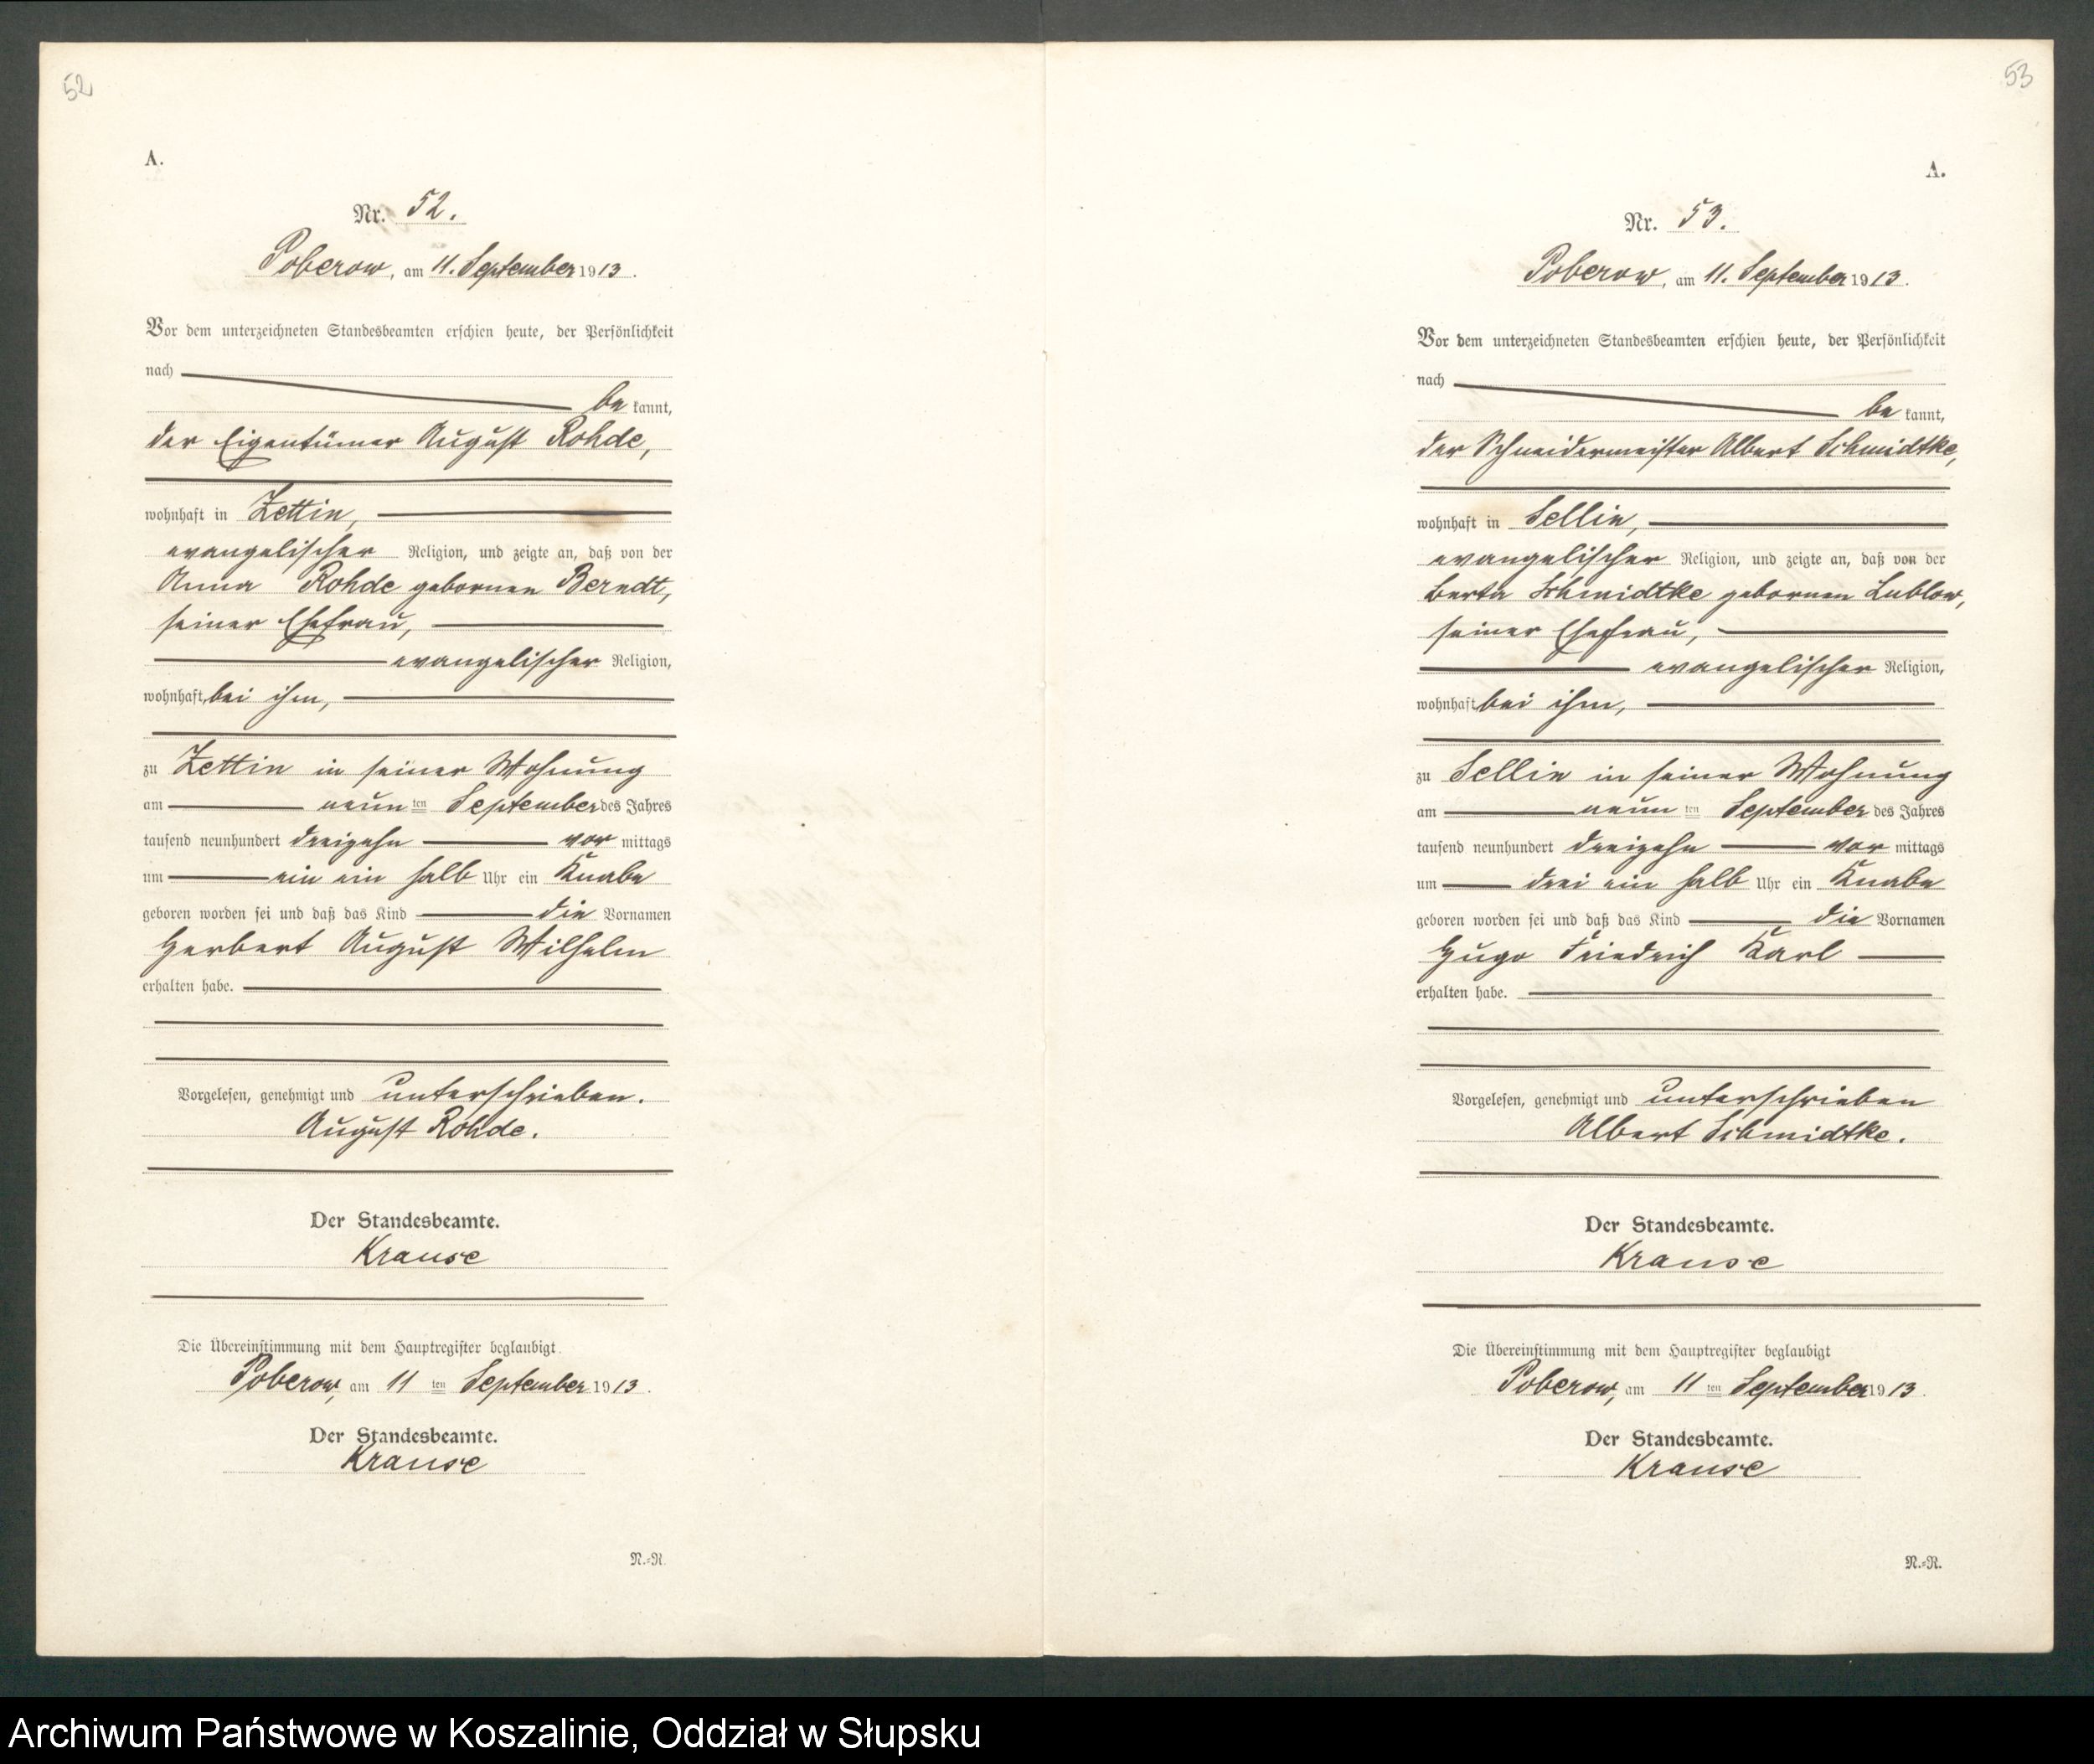 52
A.
Nr. 52.
Poberow, am 11. September 1913.
Vor dem unterzeichneten Standesbeamten erschien heute, der Persönlichkeit
nach
be kannt,
der Eigentümer August Rohde,
wohnhaft in Zettin,
evangelischer Religion, und zeigte an, daß von der
Anna Rohde gebornen Berndt,
seiner Ehefrau,
evangelischer Religion,
wohnhaft bei ihm,
zu Zettin in seiner Wohnung
am neun ten September des Jahres
tausend neunhundert dreizehn vor mittags
um ein ein halb Uhr ein Knabe
geboren worden sei und daß das Kind die Vornamen
Herbert August Wilhelm
erhalten habe.
Vorgelesen, genehmigt und unterschrieben.
August Rohde.
Der Standesbeamte.
Krause
Die Übereinstimmung mit dem Hauptregister beglaubigt
Poberow, am 11 ten September 1913.
Der Standesbeamte.
Krause
N.=R.
53
A.
Nr. 53.
Poberow, am 11. September 1913.
Vor dem unterzeichneten Standesbeamten erschien heute, der Persönlichkeit
nach
be kannt,
der Schneidermeister Albert Schmidtke,
wohnhaft in Sellin,
evangelischer Religion, und zeigte an, daß von der
Berta Schmidtke gebornen Lublow,
seiner Ehefrau,
evangelischer Religion,
wohnhaft bei ihm,
zu Sellin in seiner Wohnung
am neun ten September des Jahres
tausend neunhundert dreizehn vor mittags
um drei ein halb Uhr ein Knabe
geboren worden sei und daß das Kind die Vornamen
Hugo Friedrich Karl
erhalten habe.
Vorgelesen, genehmigt und unterschrieben
Albert Schmidtke.
Der Standesbeamte.
Krause
Die Übereinstimmung mit dem Hauptregister beglaubigt
Poberow, am 11 ten September 1913.
Der Standesbeamte.
Krause
N.=R.
Archiwum Państwowe w Koszalinie, Oddział w Słupsku